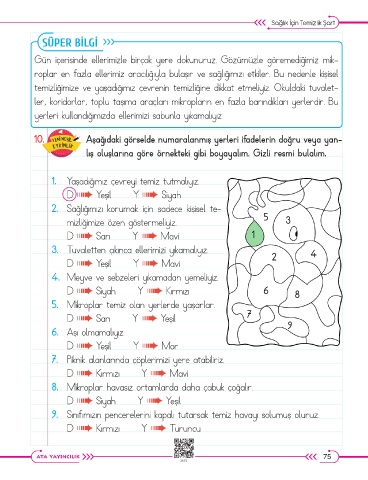 Sağlık İçin Temizlik Şart
SÜPER BİLGİ
Gün içerisinde ellerimizle birçok yere dokunuruz. Gözümüzle göremediğimiz mik-
roplar en fazla ellerimiz aracılığıyla bulaşır ve sağlığımızı etkiler. Bu nedenle kişisel
temizliğimize ve yaşadığımız çevrenin temizliğine dikkat etmeliyiz. Okuldaki tuvalet-
ler, koridorlar, toplu taşıma araçları mikropların en fazla barındıkları yerlerdir. Bu
yerleri kullandığınızda ellerimizi sabunla yıkamalıyız.
10. Aşağıdaki görselde numaralanmış yerleri ifadelerin doğru veya yan-
lış oluşlarına göre örnekteki gibi boyayalım. Gizli resmi bulalım.
1. Yaşadığımız çevreyi temiz tutmalıyız.
D Yeşil Y Siyah
2. Sağlığımızı korumak için sadece kişisel te-
mizliğimize özen göstermeliyiz.
D Sarı Y Mavi
3. Tuvaletten çıkınca ellerimizi yıkamalıyız.
D Yeşil Y Mavi
4. Meyve ve sebzeleri yıkamadan yemeliyiz.
D Siyah Y Kırmızı
5. Mikroplar temiz olan yerlerde yaşarlar.
D Sarı Y Yeşil
6. Aşı olmamalıyız.
D Yeşil Y Mor
7. Piknik alanlarında çöplerimizi yere atabiliriz.
D Kırmızı Y Mavi
8. Mikroplar havasız ortamlarda daha çabuk çoğalır.
D Siyah Y Yeşil
9. Sınıfımızın pencerelerini kapalı tutarsak temiz havayı solumuş oluruz.
D Kırmızı Y Turuncu
5
3
1
2
4
6
8
7
9
ATA YAYINCILIK
75